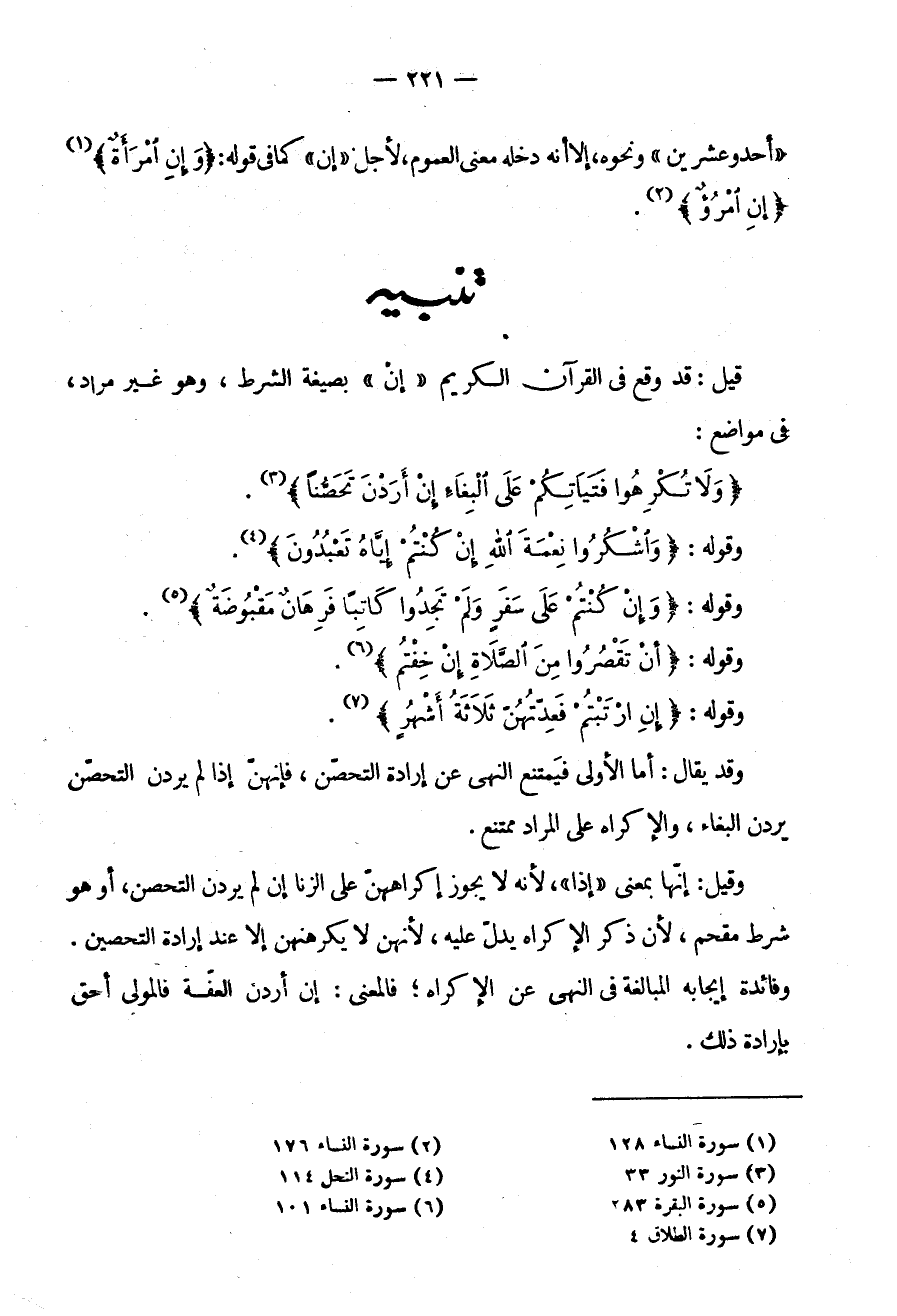 — ٢٢١ —
«أحد وعشرين» ونحوه، إلا أنه دخله معنى العموم، لأجل «إن» كما فى قوله: ﴿وَإِنِ ٱمْرَأَةٌ﴾(١)
﴿إِنِ ٱمْرُؤٌ﴾(٢).
تنبيه
قيل: قد وقع فى القرآن الكريم «إنْ» بصيغة الشرط، وهو غير مراد،
فى مواضع:
﴿وَلَا تُكْرِهُوا فَتَيَاتِكُمْ عَلَى ٱلْبِغَاءِ إِنْ أَرَدْنَ تَحَصُّناً﴾(٣).
وقوله: ﴿وَٱشْكُرُوا نِعْمَةَ ٱللهِ إِنْ كُنْتُمْ إِيَّاهُ تَعْبُدُونَ﴾(٤).
وقوله: ﴿وَإِنْ كُنْتُمْ عَلَى سَفَرٍ وَلَمْ تَجِدُوا كَاتِبًا فَرِهَانٌ مَقْبُوضَةٌ﴾(٥).
وقوله: ﴿أَنْ تَقْصُرُوا مِنَ ٱلصَّلَاةِ إِنْ خِفْتُمُ﴾(٦).
وقوله: ﴿إِنِ ارْتَبْتُمْ فَعِدّتُهُنّ ثَلَاثَةُ أَشْهُرٍ﴾(٧).
وقد يقال: أما الأولى فيَمتنع النهى عن إرادة التحصّن، فإنهنّ إذا لم يردن التحصّن
يردن البغاء، والإكراه على المراد ممتنع.
وقيل: إنّها بمعنى «إذا»، لأنه لا يجوز إكراههنّ على الزنا إن لم يردن التحصن، أو هو
شرط مقحم، لأن ذكر الإكراه يدلّ عليه، لأنهن لا يكرهنهن إلا عند إرادة التحصين.
وفائدة إيجابه المبالغة فى النهى عن الإكراه؛ فالمعنى: إن أردن العفّة فالمولى أحق
بإرادة ذلك.
(١) سورة النساء ١٢٨ (٢) سورة النساء ١٧٦
(٣) سورة النور ٣٣ (٤) سورة النحل ١١٤
(٥) سورة البقرة ٢٨٣ (٦) سورة النساء ١٠١
(٧) سورة الطلاق ٤